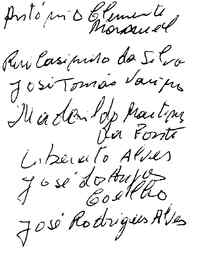 António Clemente
Maramal
Rui Casimiro da Silva
José Tomás Vargas
Martins
da Ponte
Liberato Alves
José dos Anjos
Coelho
José Rodrigues Alves